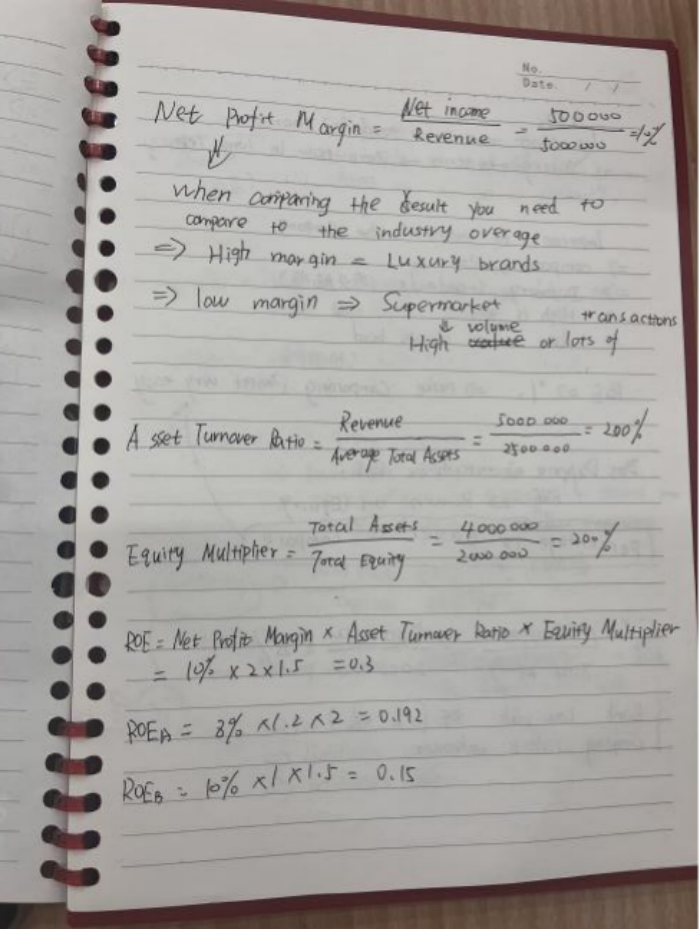 No.
Date. / /
Net Profit Margin = Net income / Revenue = 500000 / 5000000 = 10%
⇓
When comparing the Result you need to
compare to the industry overage
⇒ High margin = Luxury brands
⇒ low margin ⇒ Supermarket
⇓ volume transactions
High or lots of
Asset Turnover Ratio = Revenue / Average Total Assets = 5000 000 / 2500 000 = 200%
Equity Multiplier = Total Assets / Total Equity = 4000 000 / 2000 000 = 200%
ROE = Net Profit Margin × Asset Turnover Ratio × Equity Multiplier
= 10% × 2 × 1.5 = 0.3
ROE_A = 8% × 1.2 × 2 = 0.192
ROE_B = 10% × 1 × 1.5 = 0.15